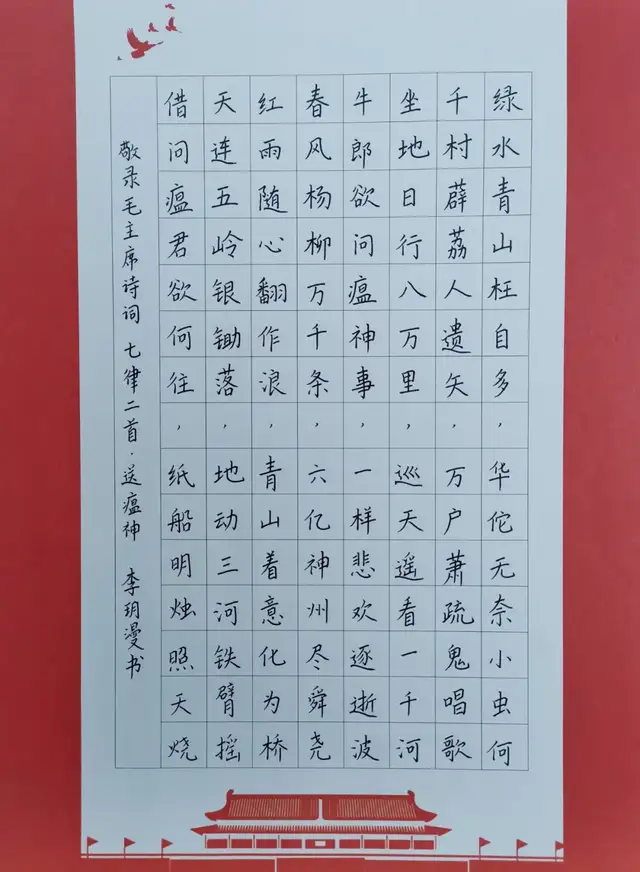 绿水青山枉自多，华佗无奈小虫何
千村薜荔人遗矢，万户萧疏鬼唱歌
坐地日行八万里，巡天遥看一千河
牛郎欲问瘟神事，一样悲欢逐逝波
春风杨柳万千条，六亿神州尽舜尧
红雨随心翻作浪，青山着意化为桥
天连五岭银锄落，地动三河铁臂摇
借问瘟君欲何往，纸船明烛照天烧
敬录毛主席诗词 七律二首·送瘟神 李玥漫书